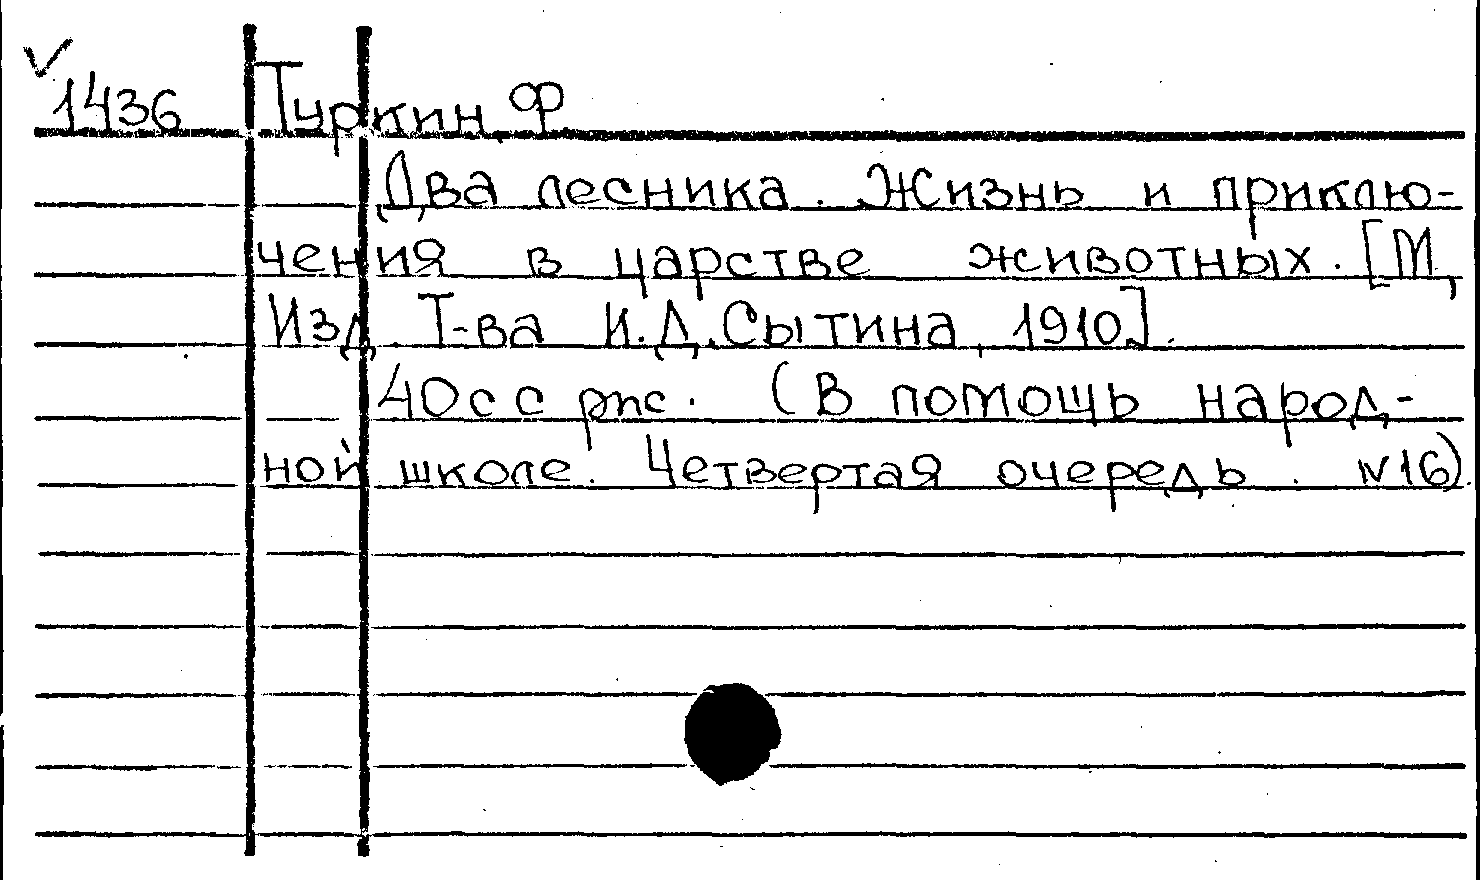 ✓
1436 Туркин Ф
Два лесника. Жизнь и приклю-
чения в царстве животных. [М,
Изд. Т-ва И.Д.Сытина, 1910].
40с с рис. (В помощь народ-
ной школе. Четвертая очередь. №16).